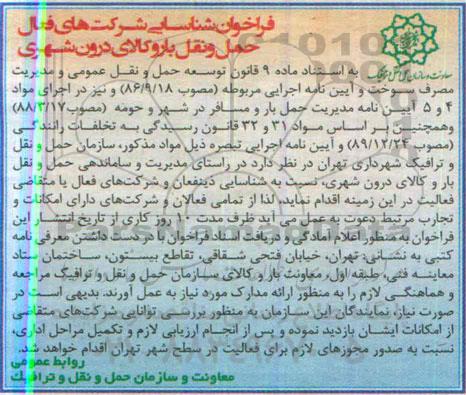 فراخوان شناسایی شرکت های فعال
حمل و نقل بار و کالای درون شهری
به استناد ماده ۹ قانون توسعه حمل و نقل عمومی و مدیریت
مصرف سوخت و آیین نامه اجرایی مربوطه (مصوب ۸۶/۹/۱۸) و نیز در اجرای مواد
۴ و ۵ آیین نامه مدیریت حمل بار و مسافر در شهر و حومه (مصوب ۸۸/۳/۱۷)
وهمچنین بر اساس مواد ۳۱ و ۳۲ قانون رسیدگی به تخلفات رانندگی
(۸۹/۱۲/۲۴) و آیین نامه اجرایی تبصره ذیل مواد مذکور، سازمان حمل و نقل
و ترافیک شهرداری تهران در نظر دارد در راستای مدیریت و ساماندهی حمل و نقل
بار و کالای درون شهری، نسبت به شناسایی ذینفعان و شرکت های فعال یا متقاضی
فعالیت در این زمینه اقدام نماید، لذا از تمامی فعالان و شرکت های دارای امکانات و
تجارب مرتبط دعوت به عمل می آید ظرف مدت ۱۰ روز کاری از تاریخ انتشار این
فراخوان به منظور اعلام آمادگی و دریافت اسناد فراخوان با در دست داشتن معرفی نامه
کتبی به نشانی: تهران، خیابان فتحی شقاقی، تقاطع بیستون، ساختمان ستاد
معاینه فنی، طبقه اول، معاونت بار و کالای سازمان حمل و نقل و ترافیک مراجعه
و هماهنگی لازم را به منظور ارائه مدارک مورد نیاز به عمل آورند. بدیهی است در
صورت نیاز، نمایندگان این سازمان به منظور بررسی توانایی شرکت های متقاضی
از امکانات ایشان بازدید نموده و پس از انجام ارزیابی لازم و تکمیل مراحل اداری،
نسبت به صدور مجوزهای لازم برای فعالیت در سطح شهر تهران اقدام خواهد شد.
روابط عمومی
معاونت و سازمان حمل و نقل و ترافیک